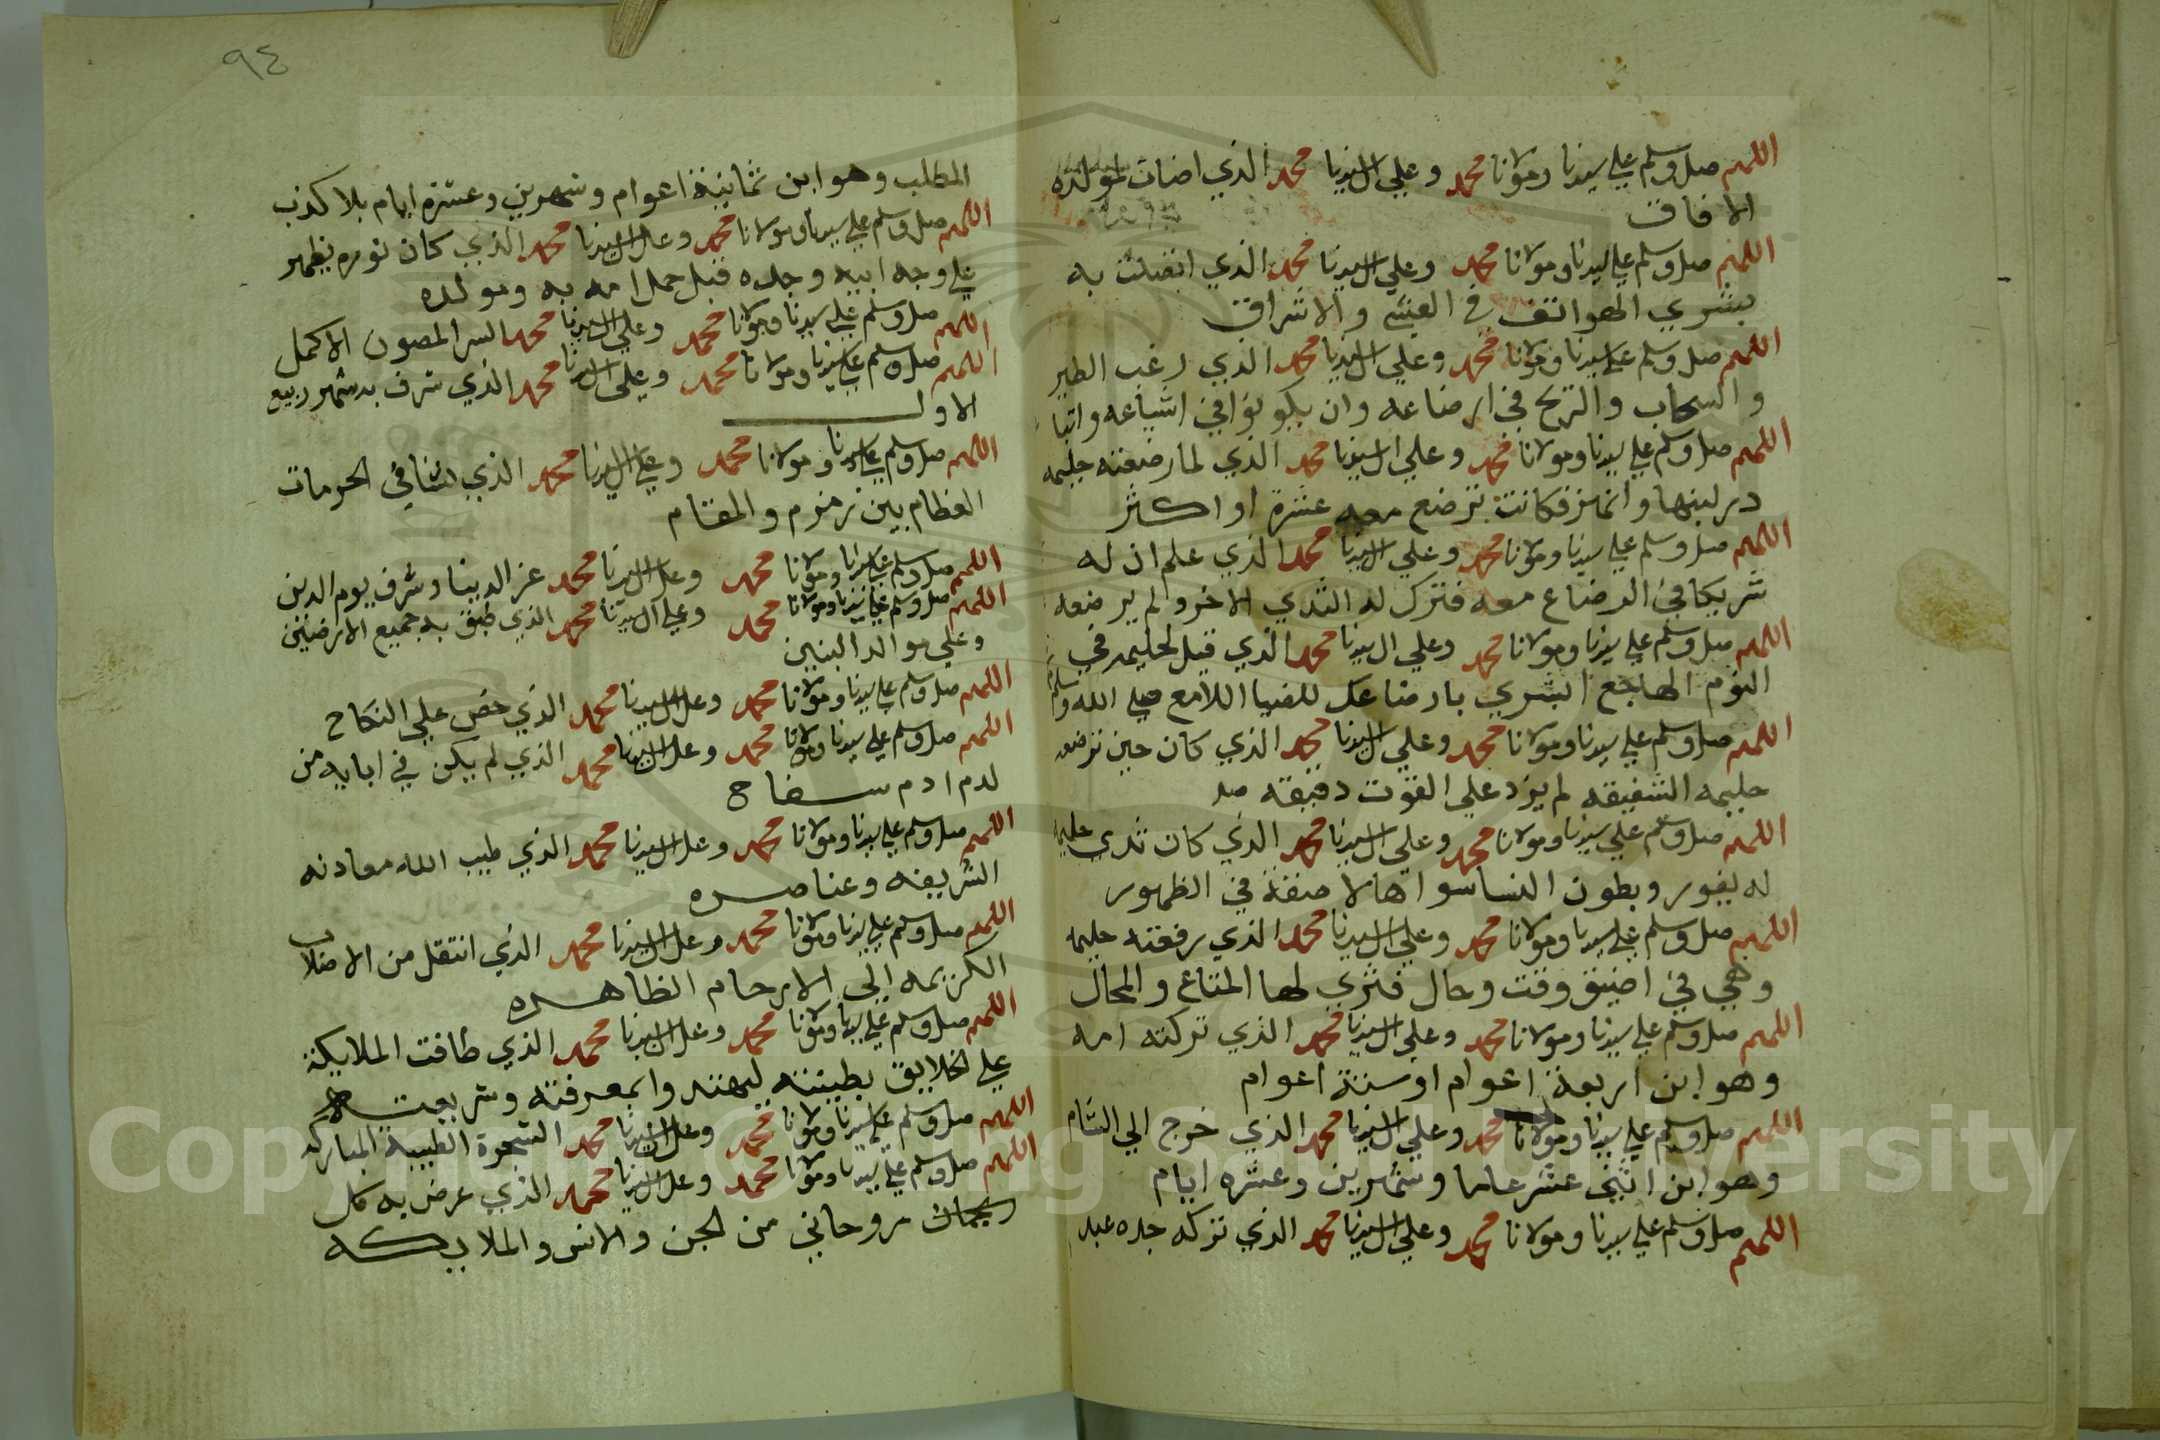 اللهم صل وسلم علي سيدنا ومولانا محمد وعلي ال سيدنا محمد الذي اضات لمولده
الافاق
اللهم صل وسلم علي سيدنا ومولانا محمد وعلي ال سيدنا محمد الذي اتصلت به
بشري الهواتف في العشي والاشراق
اللهم صل وسلم علي سيدنا ومولانا محمد وعلي ال سيدنا محمد الذي رغب الطير
والسحاب والريح في ارضاعه وان يكونوا في اشياعه واتبا
اللهم صل وسلم علي سيدنا ومولانا محمد وعلي ال سيدنا محمد الذي لما رضعته حليمه
در لبنها وانهمر فكانت ترضع معه عشرة او اكثر
اللهم صل وسلم علي سيدنا ومولانا محمد وعلي ال سيدنا محمد الذي علم ان له
شريكا في الرضاع معه فترك له الثدي الاخر ولم يرضعه
اللهم صل وسلم علي سيدنا ومولانا محمد وعلي ال سيدنا محمد الذي قيل لحليمه في
النوم الهاجع ابشري بارضاعك للضيا اللامع صلي الله وسلم
اللهم صل وسلم علي سيدنا ومولانا محمد وعلي ال سيدنا محمد الذي كان حين ترضعه
حليمه الشفيقه لم يزد علي القوت دقيقه
اللهم صل وسلم علي سيدنا ومولانا محمد وعلي ال سيدنا محمد الذي كان ثدي حليمه
له يفور وبطون النسا سواها لاصقة في الظهور
اللهم صل وسلم علي سيدنا ومولانا محمد وعلي ال سيدنا محمد الذي رفعته حليمه
وهي في اضيق وقت وحال فثري لها المتاع والمحال
اللهم صل وسلم علي سيدنا ومولانا محمد وعلي ال سيدنا محمد الذي تركته امه
وهو ابن اربعة اعوام او ستة اعوام
اللهم صل وسلم علي سيدنا ومولانا محمد وعلي ال سيدنا محمد الذي خرج الي الشام
وهو ابن اثني عشر عاما وشهرين وعشره ايام
اللهم صل وسلم علي سيدنا ومولانا محمد وعلي ال سيدنا محمد الذي تركه جده عبد
٩٤
المطلب وهو ابن ثمانية اعوام وشهرين وعشرة ايام بلا كذب
اللهم صل وسلم علي سيدنا ومولانا محمد وعلي ال سيدنا محمد الذي كان نوره يظهر
علي وجه ابيه وجده قبل حمل امه به ومولده
اللهم صل وسلم علي سيدنا ومولانا محمد وعلي ال سيدنا محمد السر المصون الاكمل
اللهم صل وسلم علي سيدنا ومولانا محمد وعلي ال سيدنا محمد الذي شرف به شهر ربيع
الاول
اللهم صل وسلم علي سيدنا ومولانا محمد وعلي ال سيدنا محمد الذي نشا في الحرمات
العظام بين زمزم والمقام
اللهم صل وسلم علي سيدنا ومولانا محمد وعلي ال سيدنا محمد عز الدنيا وشرف يوم الدين
اللهم صل وسلم علي سيدنا ومولانا محمد وعلي ال سيدنا محمد الذي طبق به جميع الارضين
وعلي موالد البنين
اللهم صل وسلم علي سيدنا ومولانا محمد وعلي ال سيدنا محمد الذي حض علي النكاح
اللهم صل وسلم علي سيدنا ومولانا محمد وعلي ال سيدنا محمد الذي لم يكن في ابايه من
لدم ادم سفاح
اللهم صل وسلم علي سيدنا ومولانا محمد وعلي ال سيدنا محمد الذي طيب الله معادنه
الشريفه وعناصره
اللهم صل وسلم علي سيدنا ومولانا محمد وعلي ال سيدنا محمد الذي انتقل من الاصلاب
الكريمه الي الارحام الطاهره
اللهم صل وسلم علي سيدنا ومولانا محمد وعلي ال سيدنا محمد الذي طافت الملايكة
علي الخلايق بطينته ليهتدوا بمعرفته وشريعته
اللهم صل وسلم علي سيدنا ومولانا محمد وعلي ال سيدنا محمد الشجرة الطيبة المباركه
اللهم صل وسلم علي سيدنا ومولانا محمد وعلي ال سيدنا محمد الذي عرض به كل
روحاني من الجن والانس والملايكه
Copyright © King Saud University